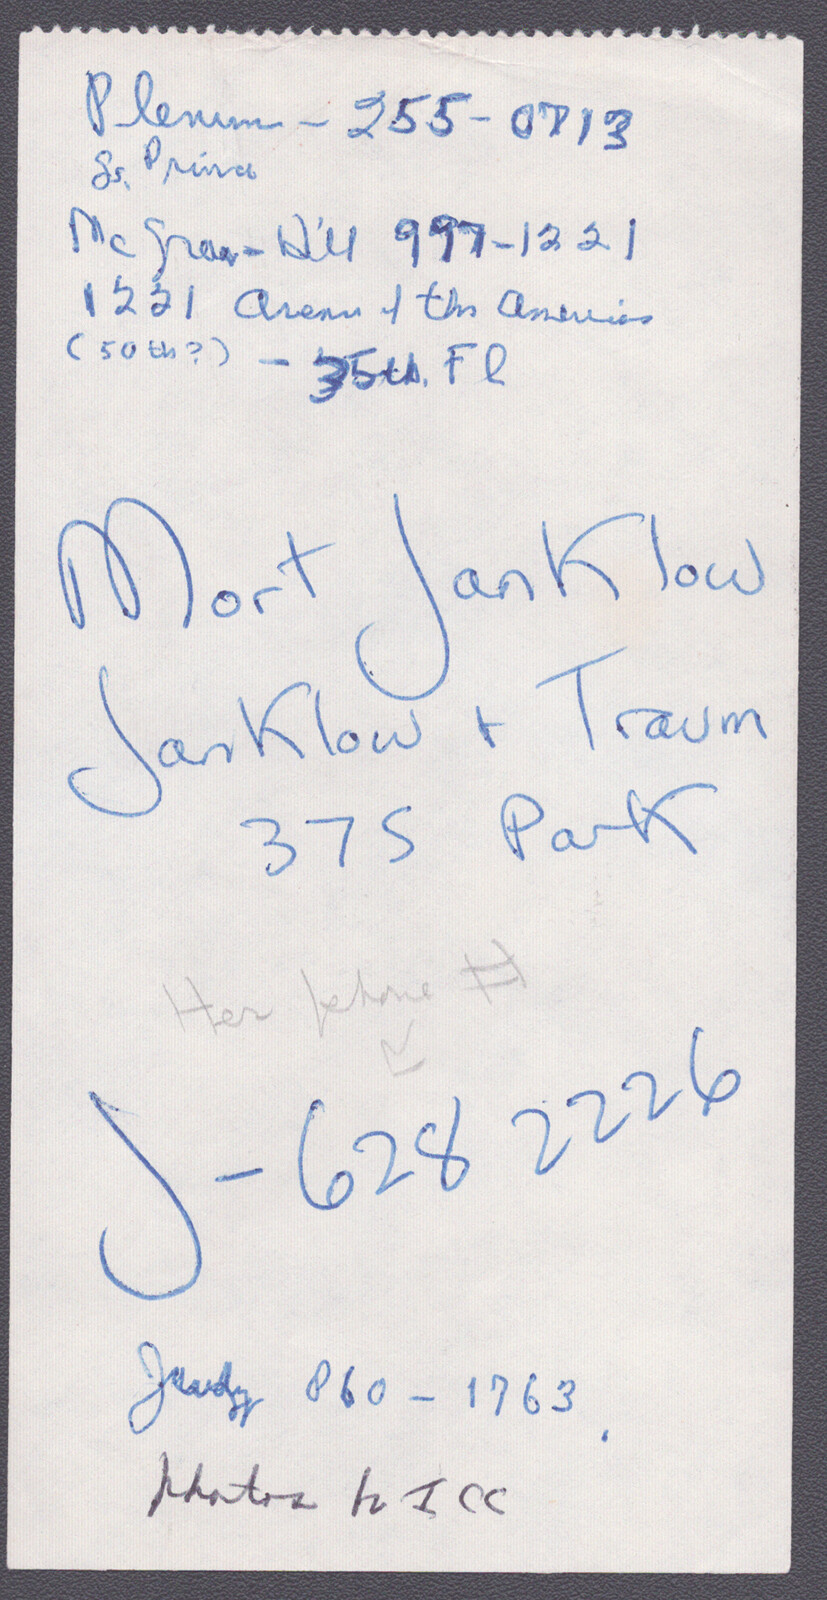 Plenum - 255-0713
McGraw-Hill 997-1221
1221 Avenue of the Americas
(50th?) - 35th. Fl
Mort Janklow
Janklow + Traum
375 Park
Her phone #
J - 628 2226
Judy 860 - 1763
photos to ICC